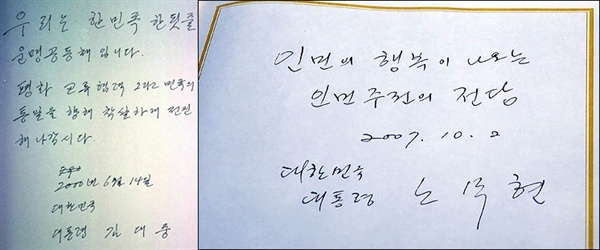 우리는 한민족 한핏줄
운명공동체입니다.
평화 교류협력 그리고 민족의
통일을 향해 착실하게 전진
해 나갑시다.
2000년 6월 14일
대한민국
대통령 김대중
인민의 행복이 나오는
인민주권의 전당
2007. 10. 2
대한민국
대통령 노무현